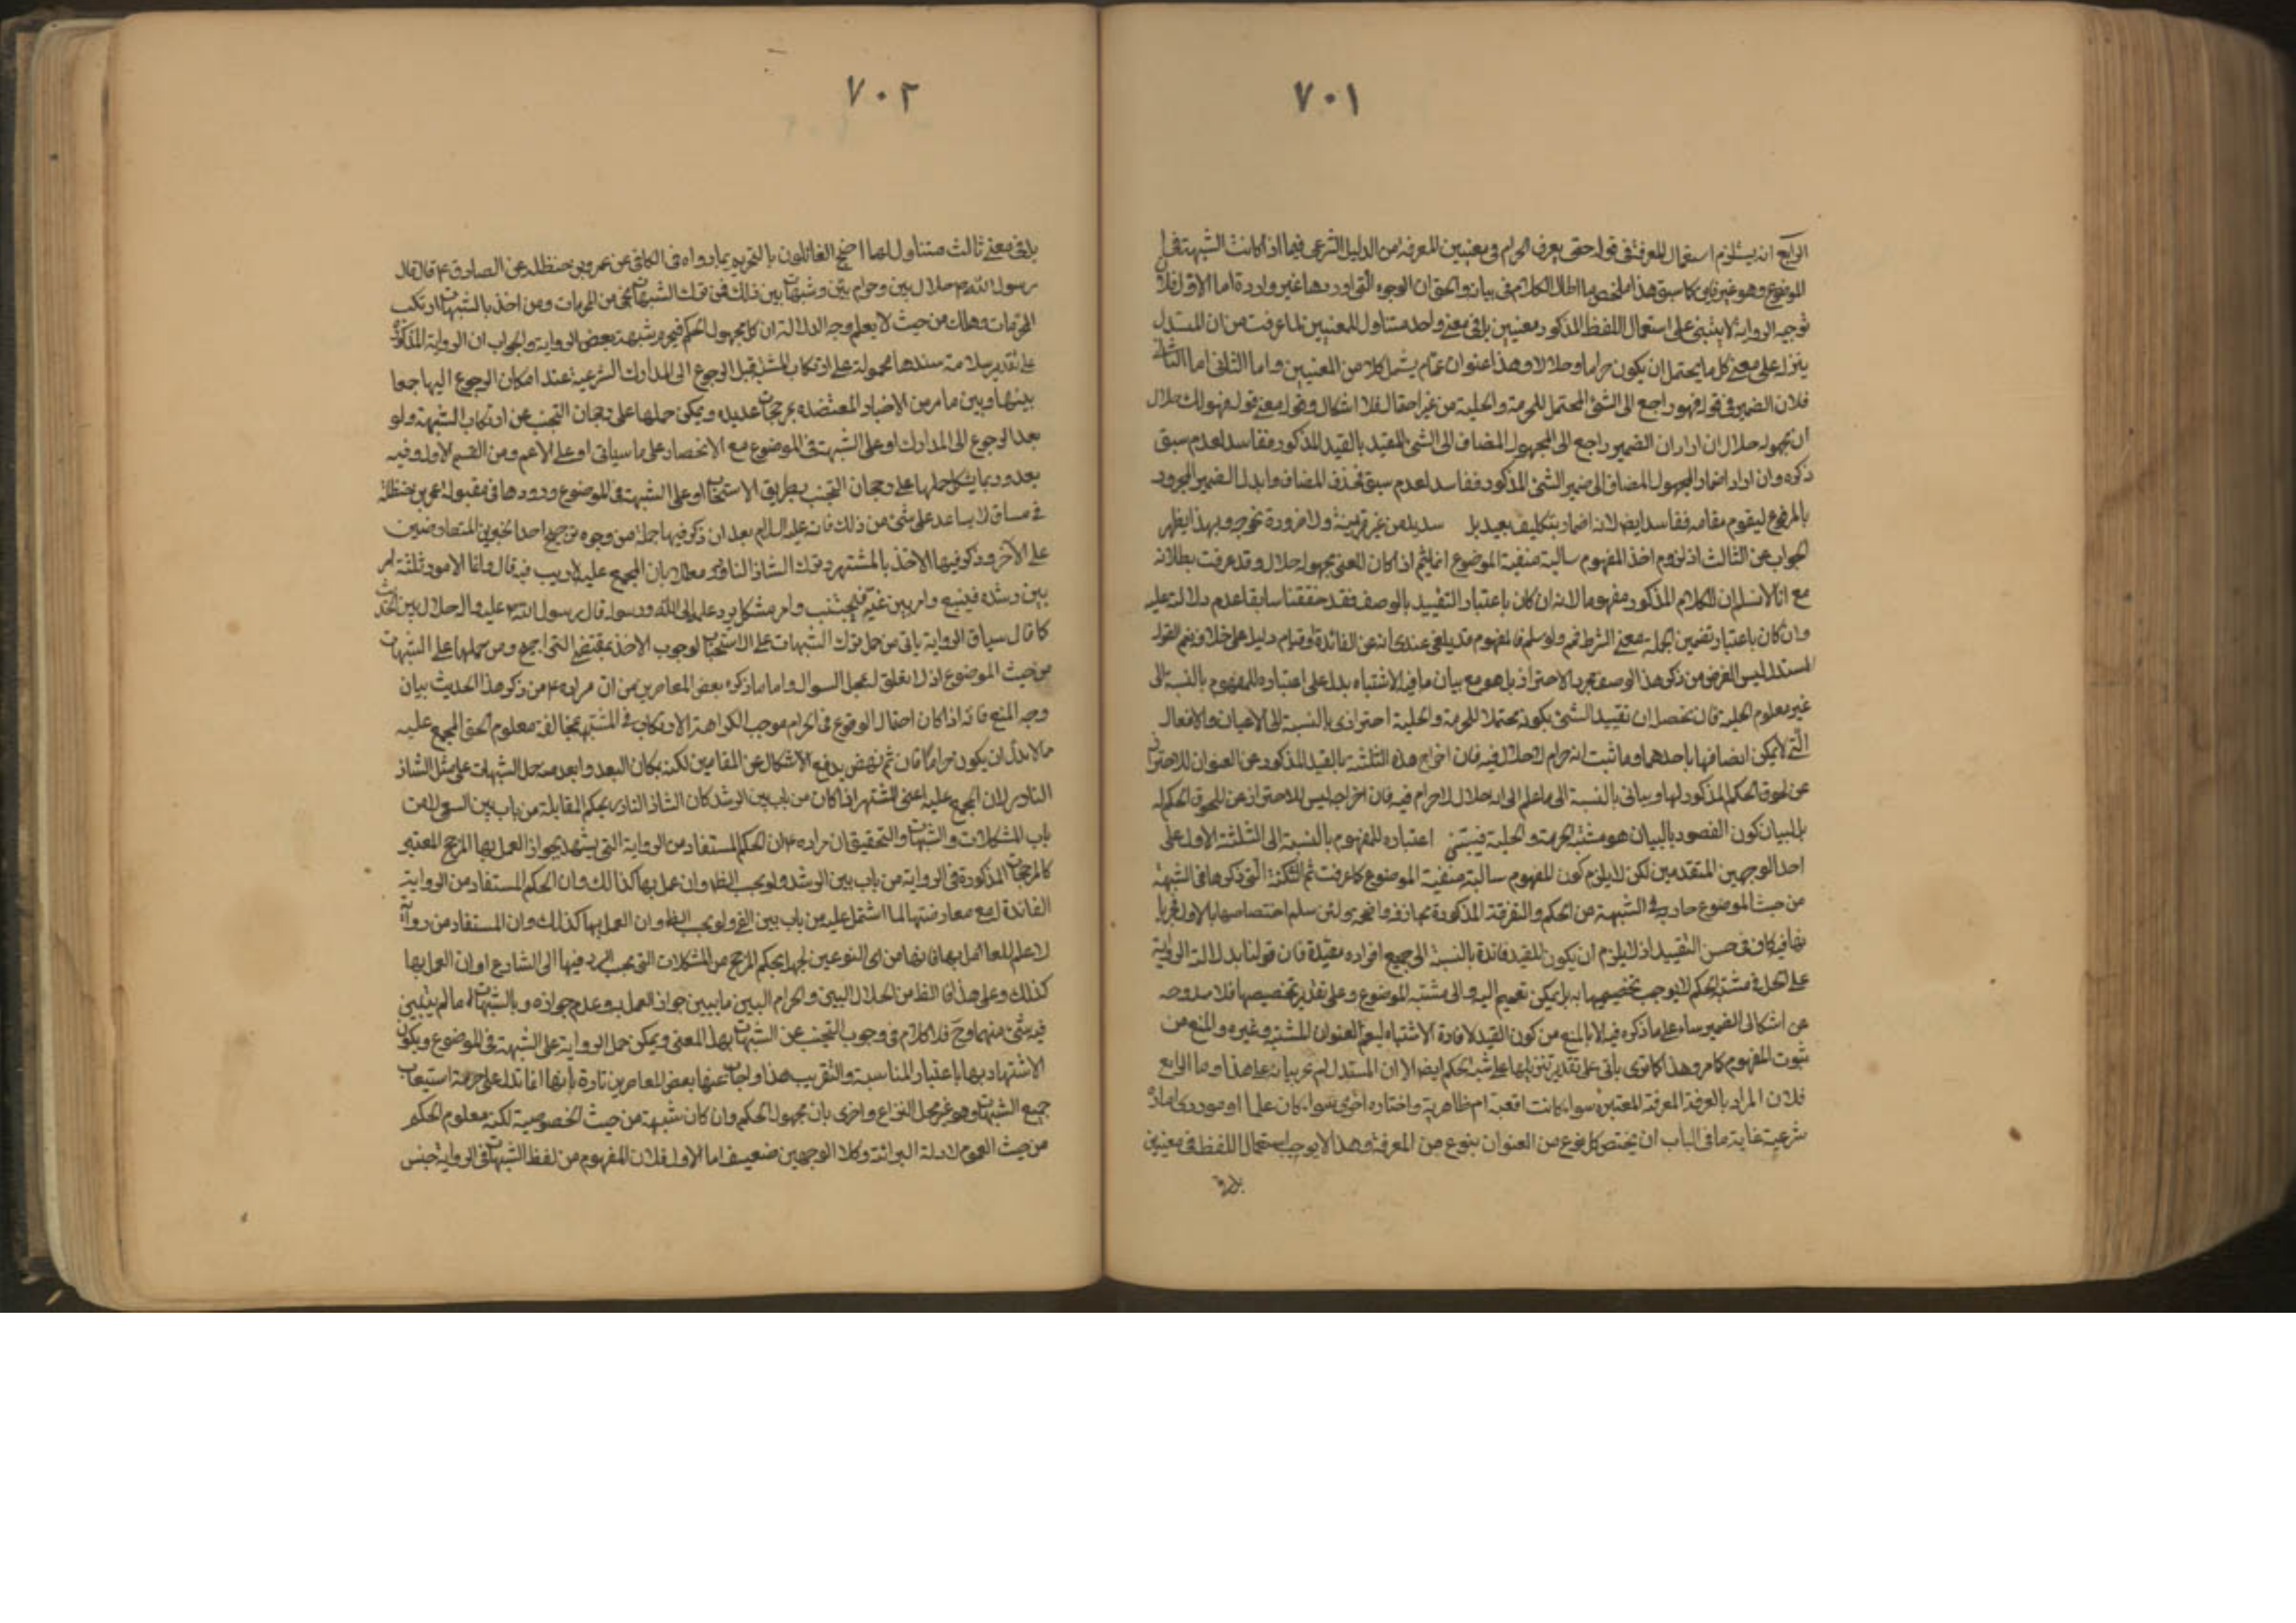 ٧٠١
الرابع انه يستلزم استعمال المعرفة في قوله حتى يعرف الحرام في معنيين المعرفة من الدليل الشرعي فيما اذا كانت الشبهة في
الموضوع وهو غير كما سبق هذا ملخص ما اطال الكلام في بيانه والحق ان الوجوه التي اوردها غير واردة اما الاول فلان
توجيه الرواية لا يبتنى على استعمال اللفظ المذكور معنيين بل في معنى واحد متناول للمعنيين لما عرفت من ان المستدل
ينزله على معنى كل ما يحتمل ان يكون حراما وحلالا وهذا عنوان عام يشمل كلا من المعنيين واما الثاني اما
فلان الضمير في قوله فهو راجع الى الشئ المحتمل للحرمة والحلية من غير اشكال وقوله معنى قوله فهو لك حلال
ان مجهوله حلال ان اراد ان الضمير راجع الى المجهول المضاف الى الشئ المقيد بالقيد المذكور ففاسد لعدم سبق
ذكره وان اراد اضمار المجهول المضاف الى ضمير الشئ المذكور ففاسد لعدم سبق فحذف المضاف وابدل الضمير المجرور
بالمرفوع ليقوم مقامه ففاسد ايضا لانه اضمار بتكليف بعيد بل سديد من غير قرينة ولا ضرورة تحوجه وبهذا يظهر
الجواب عن الثالث اذ لزوم اخذ المفهوم سالبة منفية الموضوع انما يتم اذا كان المعنى مجهوله حلال وقد عرفت بطلانه
مع انا لا نسلم ان للكلام المذكور مفهوما لانه ان كان باعتبار التقييد بالوصف فقد حققنا سابقا عدم دلالته عليه
وان كان باعتبار تضمين الجملة معنى الشرط فم ولو سلم فالمفهوم قد يلغى عندى لنوع من الفائدة او قيام دليل على خلافه
المستدل ليس الغرض من ذكر هذا الوصف مجرد الاحتراز بل هو مع بيان ما فيه الاشتباه بدل على اعتباره للمفهوم بالنسبة الى
غير معلوم الحلية فان تحصل ان تقييد الشئ بكونه محتملا للحرمة والحلية احترازى بالنسبة الى الاعيان والافعال
التي لا يمكن اتصافها باحدهما وما ثبت انه حرام لا حلال فيه فان اخراج هذه الثلثة بالقيد المذكور عن العنوان للاحتراز
عن لحوق الحكم المذكور لها وبياني بالنسبة الى ما علم الى انه حلال لا حرام فيه فان اخراجه ليس للاحتراز عن لحوق الحكم له
بل لبيان كون المقصود بالبيان هو مشتبه الحرمة والحلية فيبتنى اعتباره للمفهوم بالنسبة الى الثلثة الاول على
احد الوجهين المتقدمين لكن لا يلزم كون المفهوم سالبة منفية الموضوع كما عرفت ثم النكتة التي ذكرها في الشبهة
من حيث الموضوع جارية في الشبهة من الحكم والتفرقة المذكورة مجازفة واضحة ولئن سلم اختصاصها بالاول
كاف في حسن التقييد اذ لا يلزم ان يكون للقيد فائدة بالنسبة الى جميع افراده مقيدة فان قولنا بدلالة الرواية
على الحل في مشتبه الحكم لا يوجب تخصيصها به بل يمكن تعميم اليه والى مشتبه الموضوع وعلى تقدير تخصيصها فلا مندوحه
عن اشكال الضمير بناء على ما ذكره فيه الا بالمنع من كون القيد لافادة الاشتباه ليعم العنوان للمشتبه وغيره والمنع من
ثبوت المفهوم كما مر وهذا كما ترى ياتى على تقدير تنزيلها على شبهة الحكم ايضا الا ان المستدل لم يحرر بيانه على هذا واما الرابع
فلان المراد بالمعرفة المعرفة المعتبرة سواء كانت واقعية ام ظاهرية واختاره اخرى سواء كان علما او
شرعية غاية ما في الباب ان يختص كل نوع من العنوان بنوع من المعرفة وهذا لا يوجب استعمال اللفظ في معنيين
بل في
٧٠٢
بل في معنى ثالث متناول لهما احتج القائلون بالتحريم بما رواه في الكافي عن عمر بن حنظله عن الصادق ع قال قال
رسول الله ص حلال بين وحرام بين وشبهات بين ذلك فمن ترك الشبهات نجى من المحرمات ومن اخذ بالشبهات ارتكب
المحرمات وهلك من حيث لا يعلم وجه الدلالة ان كل مجهول الحكم فهو شبهة بعض الرواية والجواب ان الرواية المذكورة
على تقدير سلامة سندها محمولة على ارتكاب المشتبه قبل الرجوع الى المدارك الشرعية عند امكان الرجوع اليها جمعا
بينها وبين ما مر من الاخبار المعتضده بمرجحات عديده ويمكن حملها على رجحان التجنب عن ارتكاب الشبهة ولو
بعد الرجوع الى المدارك او على الشبهة في الموضوع مع الانحصار على ما سياتى او على الاعم ومن القسم الاول وفيه
بعد وربما يشكل حملها على رجحان التجنب بطريق الاستحباب او على الشبهة في الموضوع ورودها في مقبولة عمر بن حنظلة
في مساق لا يساعد على شئ من ذلك فانه عليه السلام بعد ان ذكر فيها جملة من وجوه ترجيح احد الخبرين المتعارضين
على الآخر وذكر فيها الاخذ بالمشتهر وترك الشاذ النادر معللا بان المجمع عليه لا ريب فيه قال وانما الامور ثلثة امر
بين رشده فيتبع وامر بين غيه فيجتنب وامر مشكل يرد علمه الى الله ورسوله قال رسول الله ص عليه واله حلال بين الحديث
كما قال سياق الرواية يابى من حمل ترك الشبهات على الاستحباب لوجوب الاخذ بمقتضى الترجيح ومن حملها على الشبهات
من حيث الموضوع اذ لا تعلق لمحل السوال واما ما ذكره بعض المعاصرين من ان مراده ع من ذكر هذا الحديث بيان
وجه المنع فانه اذا كان احتمال الوقوع في الحرام موجب الكراهة الارتكاب في المشتبه فمخالفة معلوم الحق المجمع عليه
ما لا بد ان يكون حراما فان تم نهض بدفع الاشكال عن المقامين لكنه بمكان البعد وابعد منه حمل الشبهات على مثل الشاذ
النادر لان المجمع عليه اعنى المشتهر اذا كان من باب بين الرشد كان الشاذ النادر بحكم المقابلة من باب بين الغى لا من
باب المشكلات والشبهات والتحقيق ان مراده ع ان الحكم المستفاد من الرواية التي يشهد بجواز العمل بها المرجح المعتبر
كالمرجحات المذكورة في الرواية من باب بين الرشد ولو بحسب الظ وان عمل بها كذلك وان الحكم المستفاد من الرواية
الفاقدة له مع معارضتها لما اشتمل عليه من باب بين الغى ولو بحسب الظ وان العمل بها كذلك وان المستفاد من رواية
لا علم للعامل بها انها من اى النوعين لجهله بحكم المرجح من المشكلات التي يجب الرد فيها الى الشارع او ان العمل بها
كذلك وعلى هذا فالظ من الحلال البين والحرام البين ما يبين جواز العمل به وعدم جوازه وبالشبهات ما لم يتبين
فيه شئ منهما وح فلا كلام في وجوب التجنب عن الشبهات بهذا المعنى ويمكن حمل الرواية على الشبهة في الموضوع ويكون
الاشتهاد بها باعتبار المناسبة والتقريب هذا واجاب عنها بعض المعاصرين تارة بانها انما تدل على حرمة استيعاب
جميع الشبهات وهو غير محل النزاع واخرى بان مجهول الحكم وان كان شبهة من حيث الخصوصية لكنه معلوم الحكم
من حيث العموم لادلة البرائة وكلا الوجهين ضعيف اما الاول فلان المفهوم من لفظ الشبهات في الرواية جنس